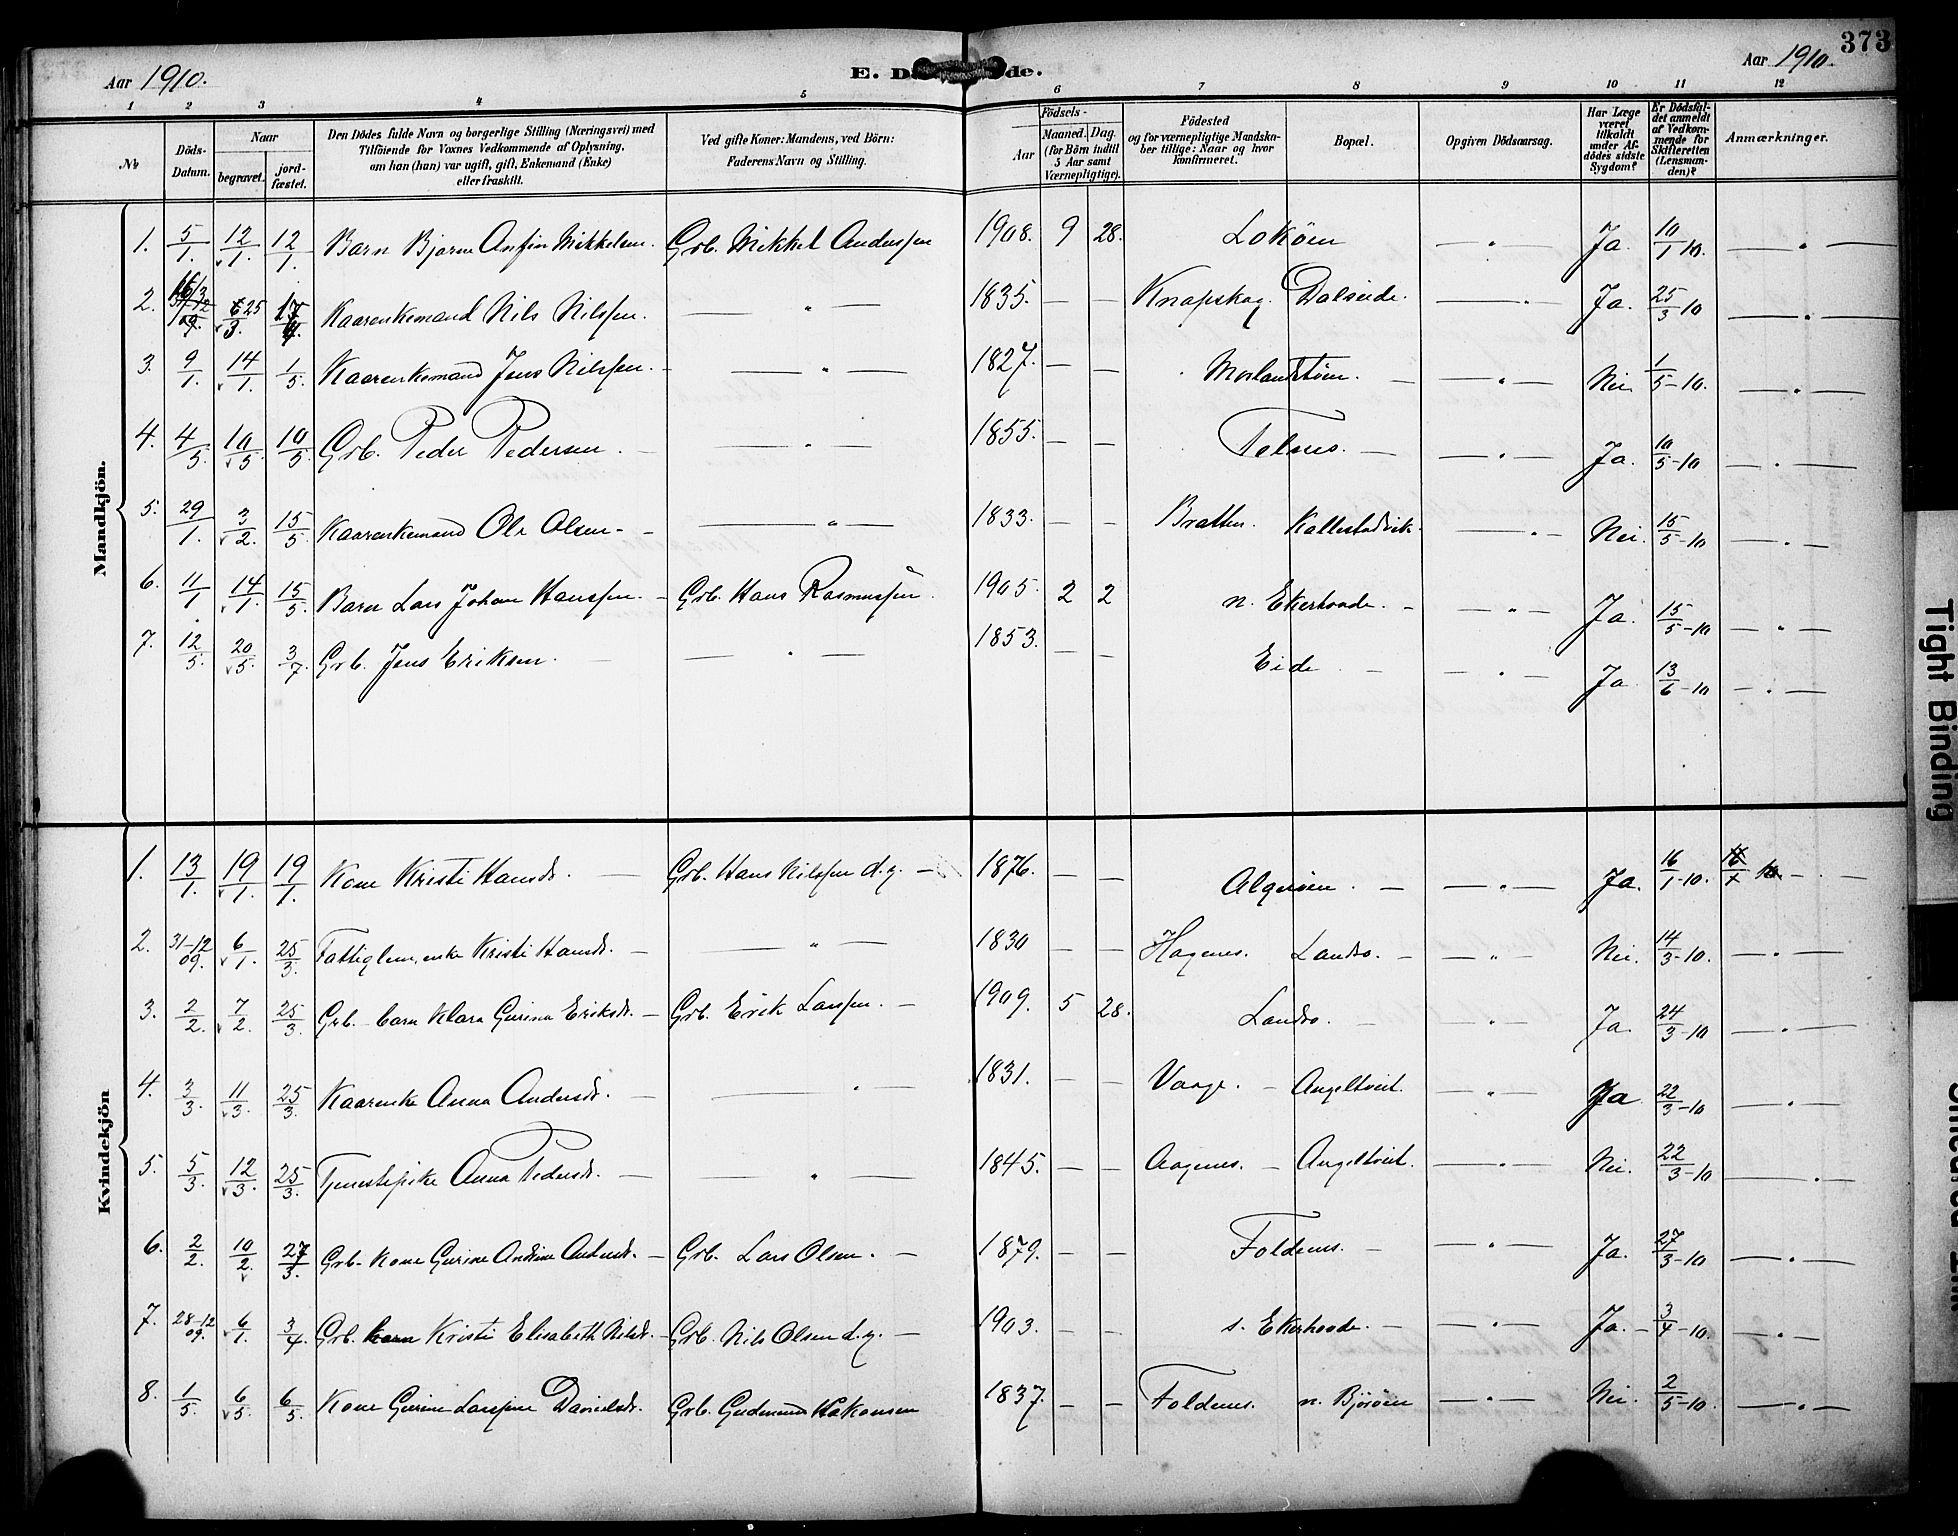 373
Aar 1910. E. D de. Aar 1910.
1 2 3 4 5 6 7 8 9 10 11 12
No
Döds-Datum.
Naar begravet. jordfæstet.
Den Dödes fulde Navn og borgerlige Stilling (Næringsvei) med
Tilföiende for Voxnes Vedkommende af Oplysning,
om han (hun) var ugift, gift, Enkemand (Enke)
eller fraskilt.
Ved gifte Koner: Mandens, ved Börn:
Faderens Navn og Stilling.
Födsels-
Aar Maaned. Dag.
(for Börn indtil
5 Aar samt
Værnepligtige).
Födested
og for værnepligtige Mandskaber tillige: Naar og hvor
konfirmeret.
Bopæl.
Opgiven Dödsaarsag.
Har Læge
været
tilkaldt
under Afdödes sidste
Sygdom?
Er Dödsfaldet anmeldt
af Vedkommende for
Skifteretten
(Lensmanden)?
Anmærkninger.
Mandkjön.
1. 5/1. 12/1. 12/1. Barn Bjarne Anfin Mikkelsen. Grb. Mikkel Anderssen 1908. 9 28. Lokøen — " — Ja. 10/1 10. — " —
2. 6/3. 25 Kaarenkemand Nils Nilssen. — " — 1835. — — Knapskog. Dalseide. — " — Ja. 25/3 10 — " —
3. 9/1. 14/1. 1/5. Kaarenkemand Jens Nilssen. — " — 1827. — — Morlandstøen. — " — Nei. 1/5-10. — " —
4. 4/5. 10/5. 10/5. Grb. Peder Pedersen. — " — 1855. — — Telnes. — " — Ja. 10/5-10 — " —
5. 29/1. 3/2. 15/5. Kaarenkemand Ole Olsen — — " — 1833. — — Bratten. Kallestadvik. — " — Nei. 15/5-10 — " —
6. 11/1 14/1. 15/5. Barn Lars Johan Hanssen. — Grb. Hans Rasmussen. 1905. 2 2 n. Ekerhovde. — — " — Ja. 15/5-10 — " —
7. 12/5. 20/5. 3/7. Grb. Jens Eriksen. — " — 1853. — — Eide — " — Ja 13/6-10 — " —
Kvindekjön
1. 13/1. 19/1. 19/1. Kone Kristi Hansdr. — Grb. Hans Nilssen d.y. — 1876. — — Algerøen. — — " — Ja. 16/1-10.
2. 31-12/09. 6/1. 25/3. Fattiglem, enke Kristi Hansdr. — — " — 1830 — — Hagenes. Landro. — — " — Nei. 14/3-10. — " —
3. 2/2. 7/2. 25/3. Grb. barn Klara Gurina Eriksdr. — Grb. Erik Larssen. — 1909. 5 28. Landro. — — " — Ja. 24/3-10 — " —
4. 3/3. 11/3. 25/3. Kaarenke Anna Andersdr. — — " — 1831. — — Vaage. — Angeltveit. — " — Ja 22/3-10 — " —
5. 5/3. 12/3. 25/3. Tjenestepike Anna Pedersdr. — — " — 1845. — — Aagenes. — Angeltveit. — " — Nei. 22/3-10 — " —
6. 2/2. 10/2. 27/3. Grb. Kone Gurine Andrine Andersdr. — Grb. Lars Olsen. — 1879. — — Foldenes. — — " — Ja. 27/3-10 — " —
7. 28-12/09. 6/1. 3/4 Grb. barn Kristi Elisabeth Nilsdr. — Grb. Nils Olsen d.y. — 1903. — — s. Ekerhovde. — — " — Ja. — 3/4-10. — " —
8. 1/5. 6/5. 6/5. Kone Gurine Larssine Danielsdr. Grb. Gudmund Hakonsen 1837. — — Foldenes. n. Bjørøen — " — Nei. 2/5-10. — " —
Tight Binding